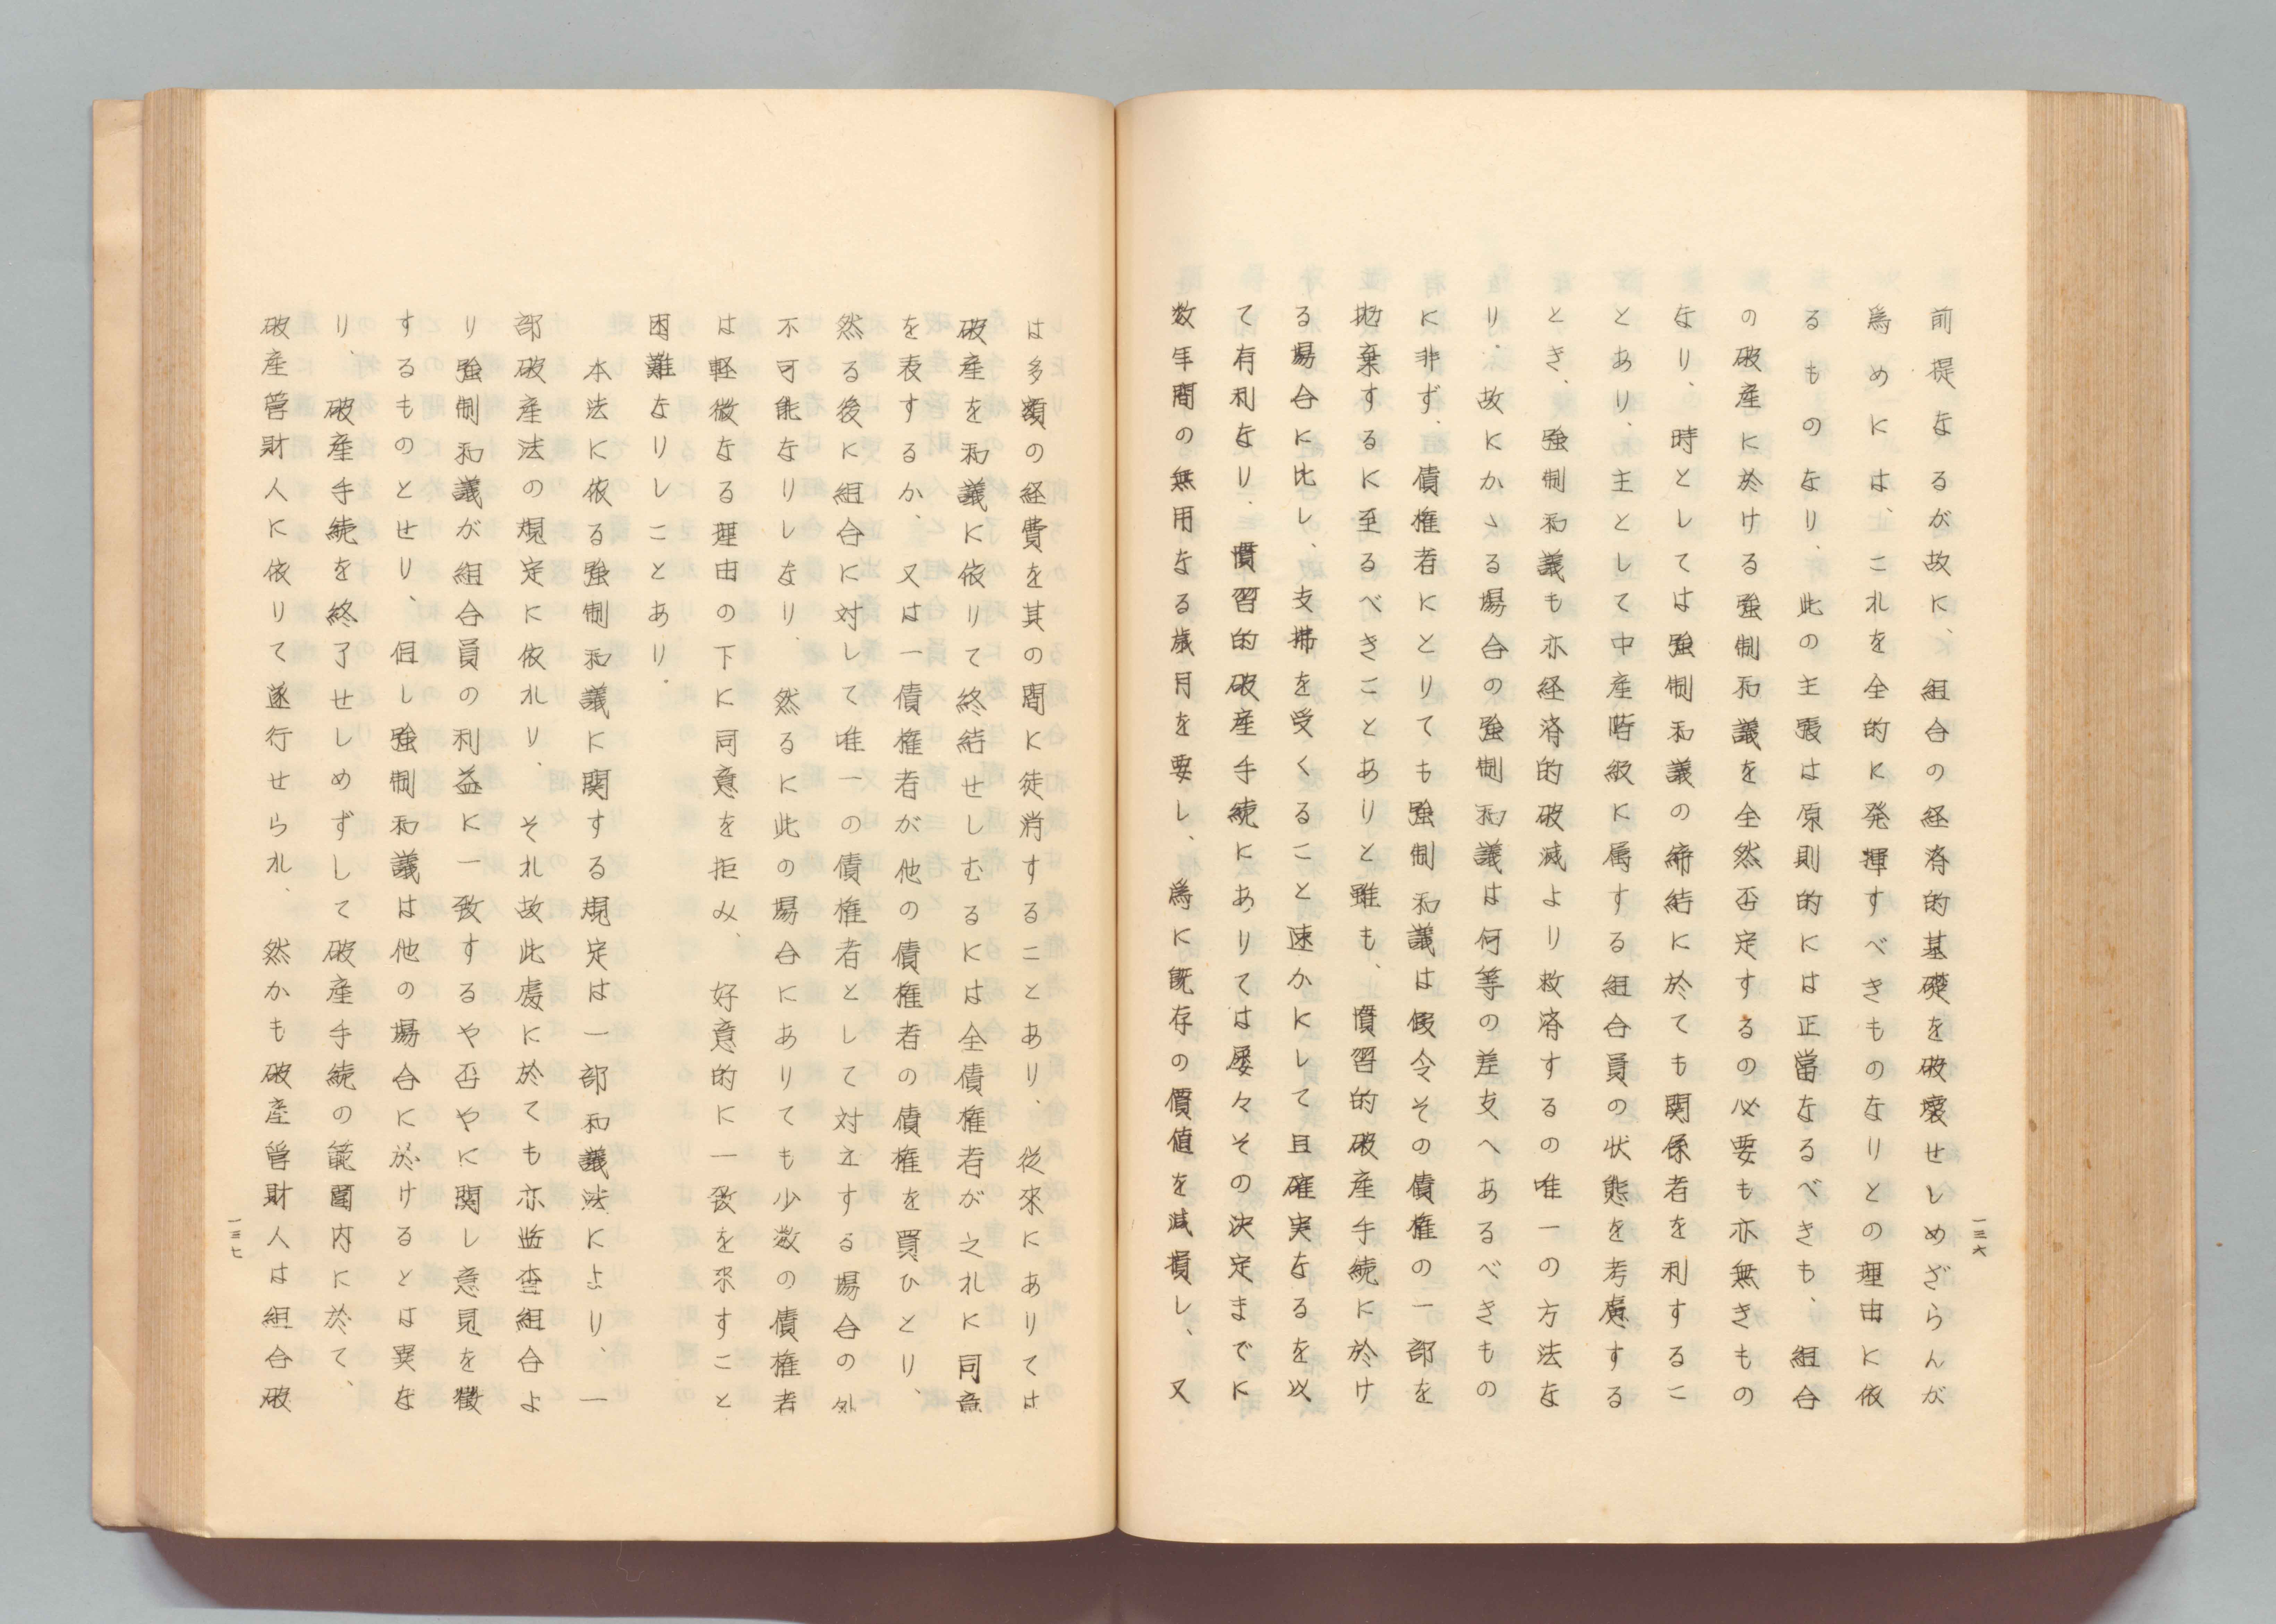 前提なるが故に、組合の経済的基礎を破壊せしめざらんが
為めには、これを全的に発揮すべきものなりとの理由に依
るものなり、此の主張は原則的には正當なるべきも、組合
の破産に於ける強制和議を全然否定するの必要も亦無きもの
なり、時としては強制和議の締結に於ても関係者を利するこ
とあり、主として中産階級に属する組合員の状態を考慮する
とき、強制和議も亦経済的破滅より救済するの唯一の方法な
り、故にかゝる場合の強制和議は何等の差支へあるべきもの
に非ず、債権者にとりても強制和議は假令その債権の一部を
抛棄するに至るべきことありと雖も、慣習的破産手続に於け
る場合に比し、支拂を受くること速かにして且確実なるを以
て有利なり、慣習的破産手続にありては屡々その決定までに
数年間の無用なる歳月を要し、為に既存の價値を減損し、又
一三六
は多額の経費を其の間に徒消することあり、從來にありては
破産を和議に依りて終結せしむるには全債権者が之れに同意
を表するか、又は一債権者が他の債権者の債権を買ひとり、
然る後に組合に対して唯一の債権者として対立する場合の外
不可能なりしなり、然るに此の場合にありても少数の債権者
は軽微なる理由の下に同意を拒み、好意的に一致を來すこと
困難なりしことあり、
本法に依る強制和議に関する規定は一部和議法により、一
部破産法の規定に依れり、それ故此處に於ても亦監査組合よ
り強制和議が組合員の利益に一致するや否やに関し意見を徴
するものとせり、但し強制和議は他の場合に於けるとは異な
り、破産手続を終了せしめずして破産手続の範囲内に於て、
破産管財人に依りて遂行せられ、然かも破産管財人は組合破
一三七